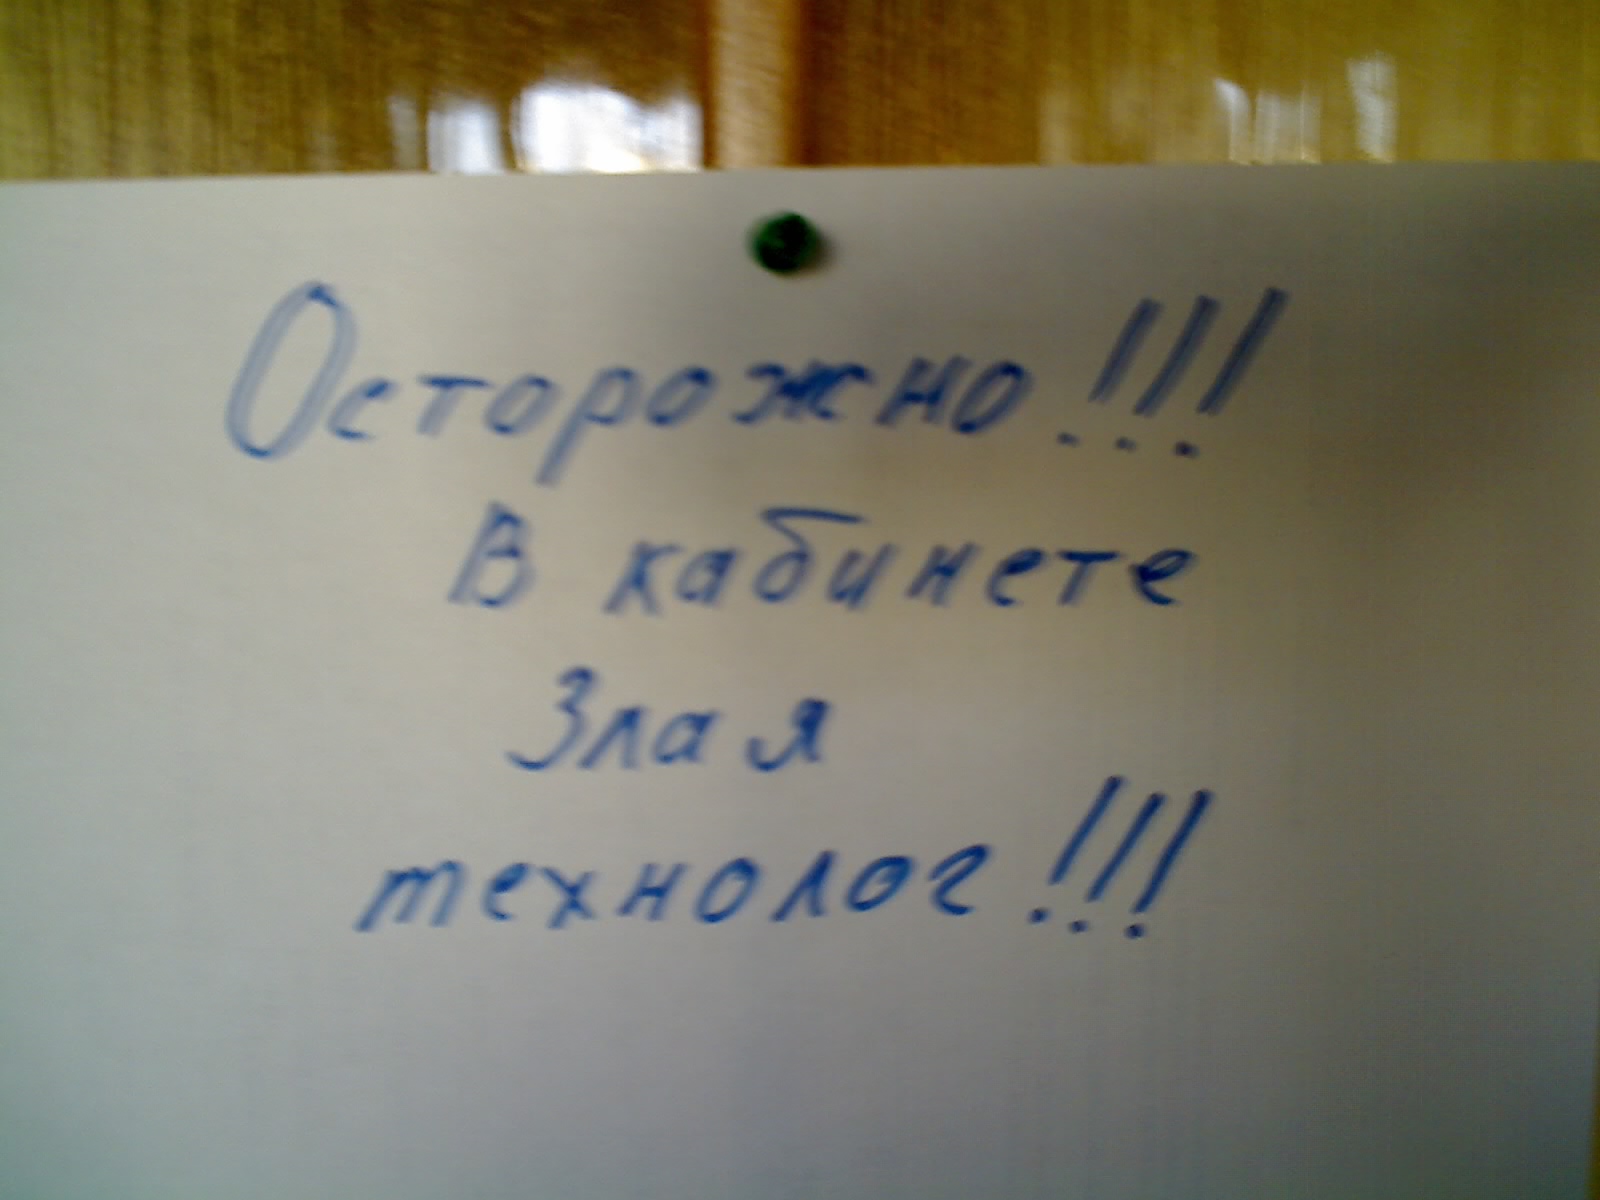 Осторожно!!!
В кабинете
Злая
технолог!!!